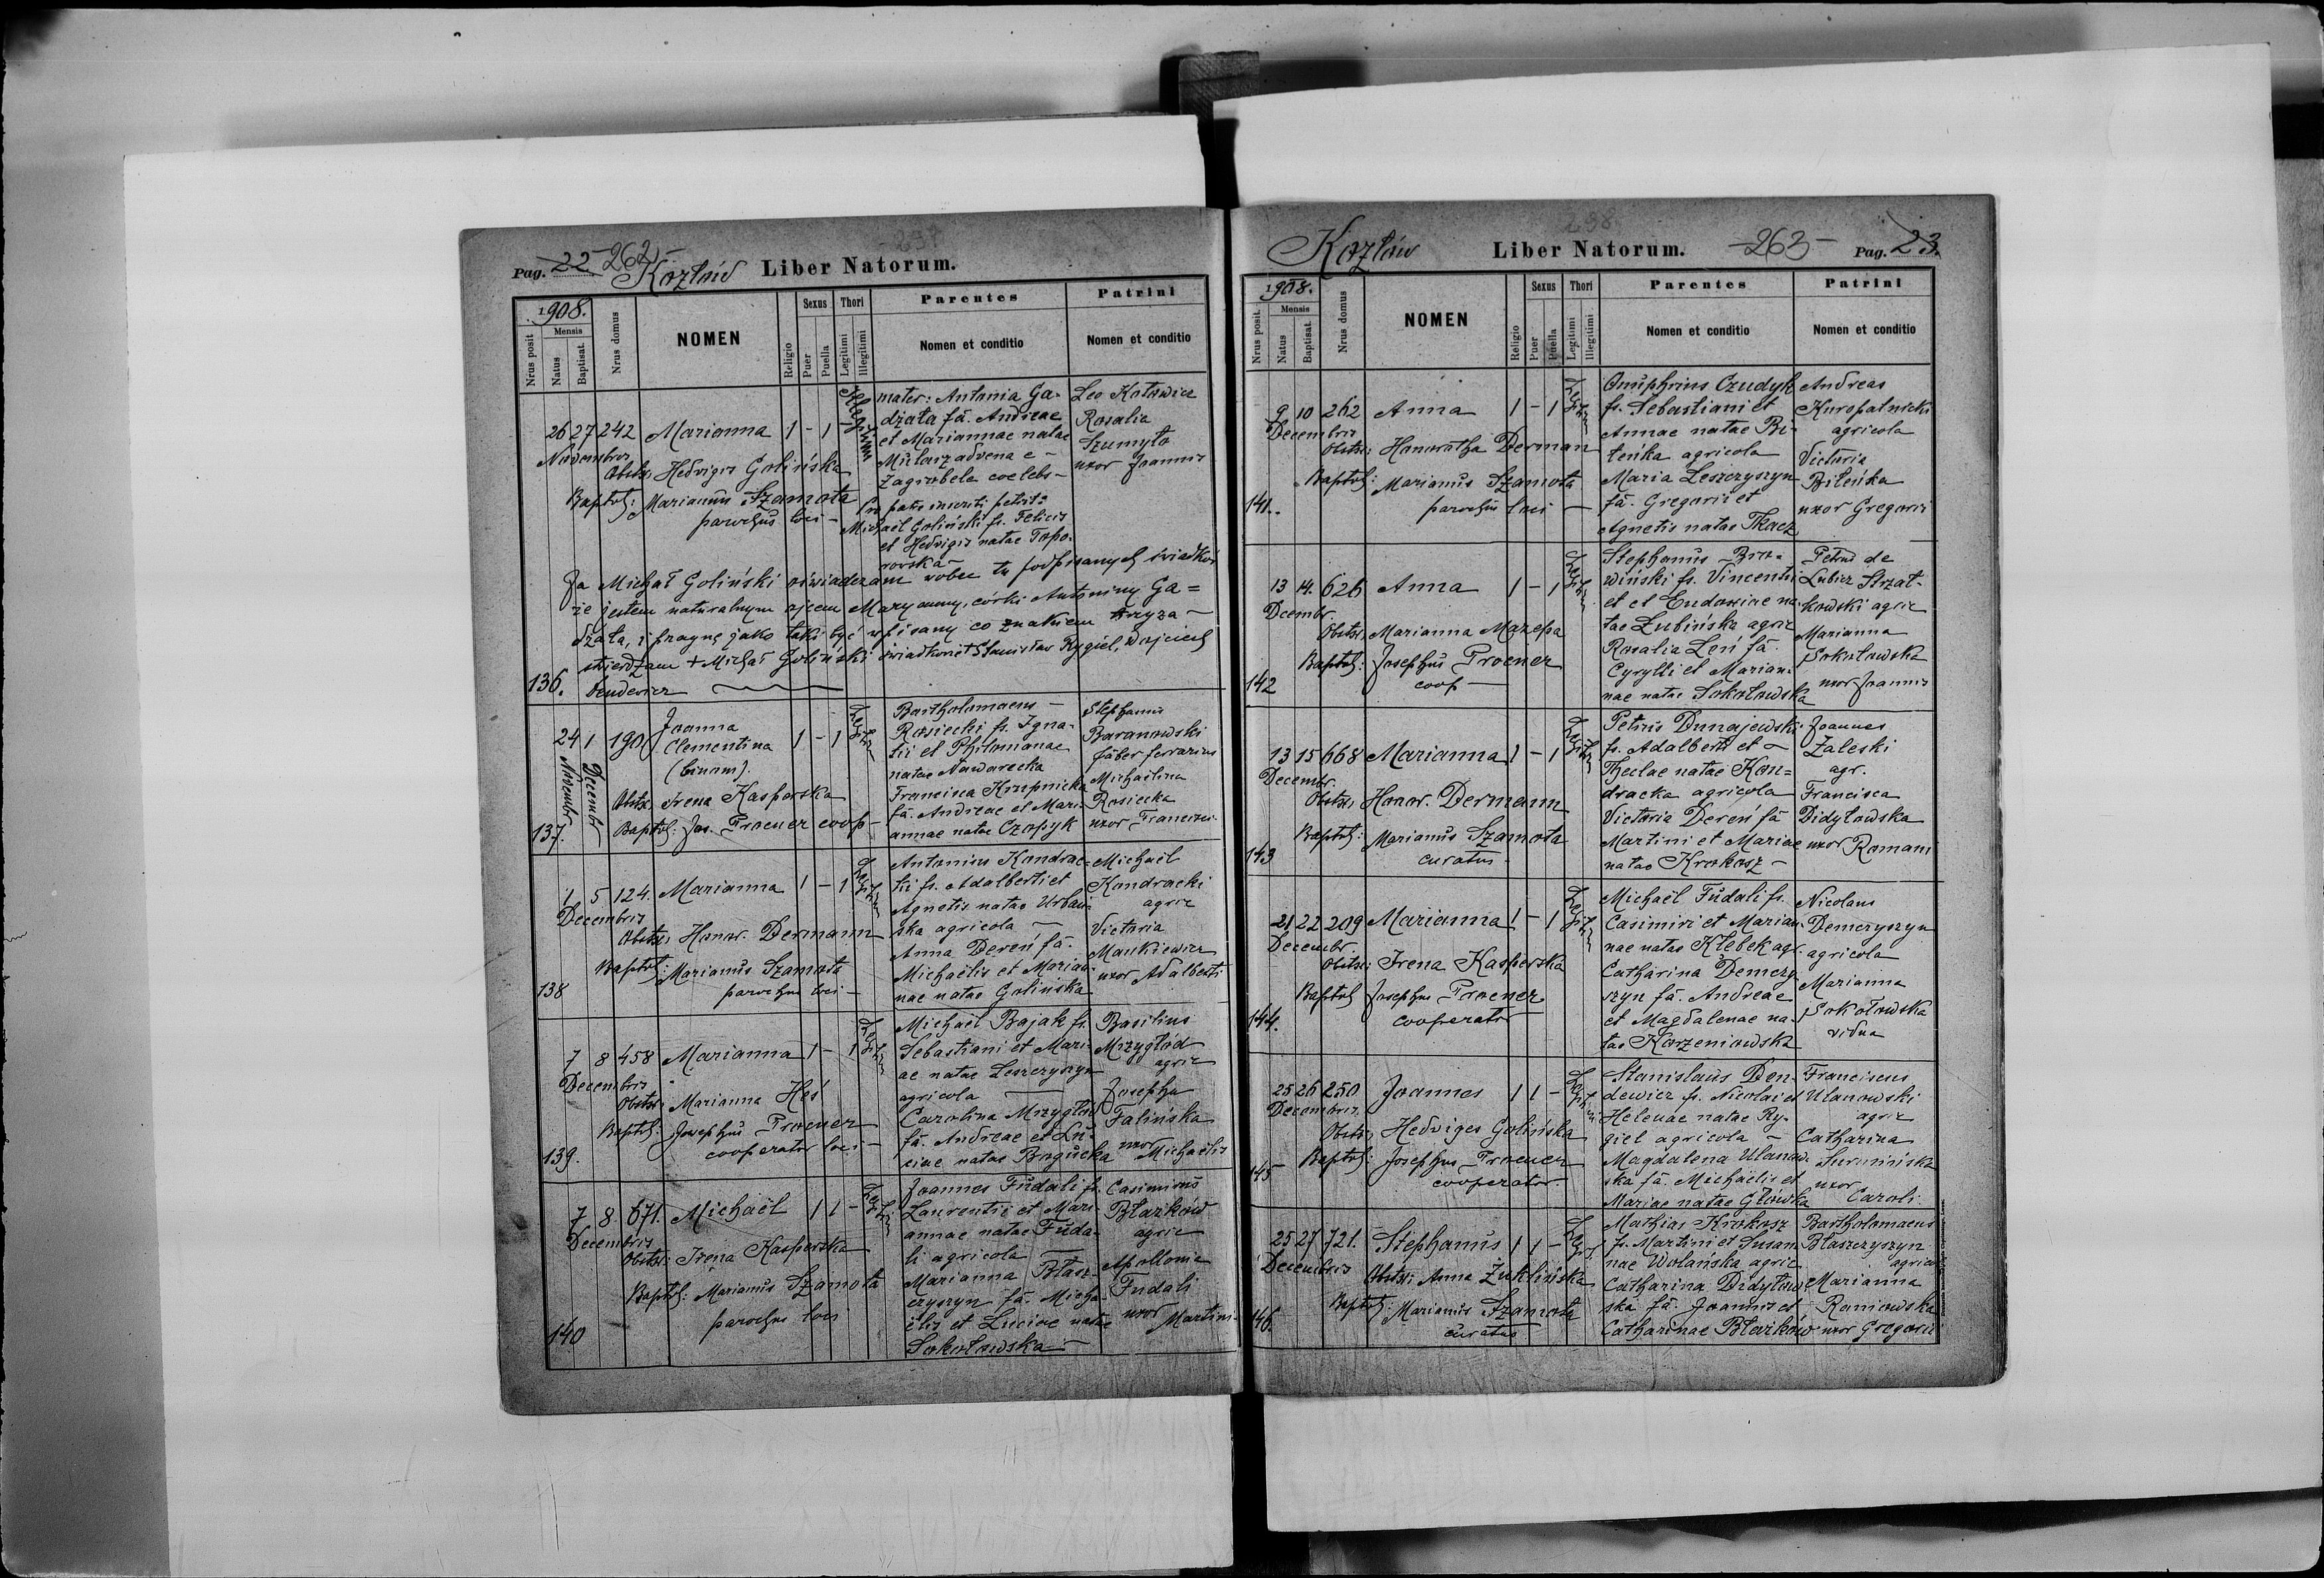 Pag. 22 - 262 -
297
Kozłów Liber Natorum.
1908.
Nrus posit
Mensis
Natus
Baptisat.
Nrus domus
NOMEN
Religio
Sexus
Puer
Puella
Thori
Legitimi
Illegitimi
Parentes
Nomen et conditio
Patrini
Nomen et conditio
26 27 242 Marianna 1 - 1 Illegitimi
Novembris
Obstetr: Hedvigis Golińska
Baptol: Marianus Szamota
parochus loci -
mater: Antonia Ga-
dzała fa. Andreae
et Mariannae natae
advena e -
Zagrobela coelebs -
Pro patre inseriti petiit:
Michaël Goliński fs. Felicis
et Hedvigis natae Topo-
rovska -
Leo Kotowicz
Rosalia
Szumyło
uxor Joannis
Ja Michał Goliński oświadczam wobec tu podpisanych świadków
że jestem naturalnym ojcem Maryanny, córki Antoniny Ga=
dzała, i pragnę jako taki być wpisany co znakiem krzyża -
stwierdzam + Michał Goliński świadkowie + Stanisław Rygiel, Wojciech
136. Dendewicz
24 1 190 Joanna
Clementina
(binom).
1 - 1 Legitimi
Novembr Decembr
Obstr. Irena Kasperska
137. Baptol: Jos. Procner coop -
Bartholomaeus -
Rosiecki fs. Igna-
tii et Philomenae
natae Nawarecka
Francisca Krupnicka
fa. Andreae et Mari-
annae natae Czopyk
Stephanus
Baranowski
faber ferrarius
Michaëlina
Rosiecka
uxor Francisci
1 5 124. Marianna 1 - 1 Legitimi
Decembris
Obstr: Honor. Dermann
Baptol: Marianus Szamota
138 parochus loci -
Antonius Kondrac-
ki fs. Adalberti et
Agnetis natae Urbań-
ska agricola -
Anna Dereń fa.
Michaëlis et Marian-
nae natae Golińska
Michaël
Kondracki
agric
Victoria
Mankiewicz
uxor Adalberti
7 8 458 Marianna 1 - 1 Legitimi
Decembris
Obstr: Marianna Heś
Baptol: Josephus Procner
139. cooperator loci -
Michaël Bojak fs.
Sebastiani et Mari-
ae natae Leszczyszyn
agricola -
Carolina Mrzygłód
fa. Andreae et Lu-
ciae natae Bogucka
Basilius
Mrzygłod
agric
Josepha
Falińska
uxor Michaëlis
7 8 671. Michaël 1 1 - Legitimi
Decembris
Obstr: Irena Kasperska
Baptol: Marianus Szamota
140 parochus loci
Joannes Fudali fs.
Laurentii et Mari-
annae natae Fuda-
li agricola
Marianna Błasz-
czyszyn fa. Micha-
ëlis et Luciae natae
Sokołowska -
Casimirus
Błażków
agric
Apollonia
Fudali
uxor Martini
298
Kozłów Liber Natorum. - 263 - Pag. 23.
1908.
Nrus posit.
Mensis
Natus
Baptisat.
Nrus domus
NOMEN
Religio
Sexus
Puer
Puella
Thori
Legitimi
Illegitimi
Parentes
Nomen et conditio
Patrini
Nomen et conditio
9 10 262 Anna 1 - 1 Legitimi
Decembris
Obstr: Honoratha Derman
Baptol: Marianus Szamota
141. parochus loci -
Onuphrius Czudyk
fs. Sebastiani et
Annae natae Bi-
leńka agricola
Maria Leszczyszyn
fa. Gregorii et
Agnetis natae Tkacz
Andreas
Kuropatnicki
agricola
Victoria
Bileńka
uxor Gregorii
13 14. 626 Anna 1 - 1 Legitimi
Decembr.
Obstr: Marianna Mazepa
Baptol: Josephus Procner
142 coop -
Stephanus
wiński fs. Vincentii
et et Eudoxiae na-
tae Lubińska agric
Rosalia Leń fa.
Cyrylli et Marian-
nae natae Sokołowska
Petrus de
Lubicz Strzał-
kowski agric
Marianna
Sokołowska
uxor Joannis
13 15 668 Marianna 1 - 1 Legitimi
Decembr.
Obstr: Honor. Dermann
Baptol: Marianus Szamota
143 curatus -
Petrus Dunajewski
fs. Adalberti et -
Theclae natae Kon=
dracka agricola
Victoria Dereń fa
Martini et Mariae
natae Krokosz -
Joannes
Zaleski
agr.
Francisca
Didyłowska
uxor Romani
21 22 209 Marianna 1 - 1 Legitimi
Decembr.
Obstr: Irena Kasperska
Baptol Josephus Procner
144. cooperator
Michaël Fudali fs.
Casimiri et Marian-
nae natae Kłebek agr.
Catharina Demczy-
szyn fa. Andreae
et Magdalenae na-
tae Korzeniowska
Nicolaus
Demczyszyn
agricola
Marianna
Sokołowska
vidua
25 26 250 Joannes 1 1 - Legitimi
Decembris
Obstr: Hedviges Golińska
145 Baptol: Josephus Procner
cooperator
Stanislaus Den-
dewicz fs. Nicolai et
Helenae natae Ry-
giel agricola -
Magdalena Ulanow-
ska fa. Michaëlis et
Mariae natae Główka
Franciscus
Ulanowski
agric
Catharina
Surmińska
uxor
Caroli.
25 27 721. Stephanus 1 1 - Legit.
Decembris
Obstr: Anna Żuklińska
Baptol: Marianus Szamota
146. curatus
Mathias Krokosz
fs. Martini et Susan-
nae Wolańska agric
Catharina Didyłow-
ska fa. Joannis et
Catharinae Błażków
Bartholomaeus
Błaszczyszyn
agricola
Marianna
Romiowska
uxor Gregorii